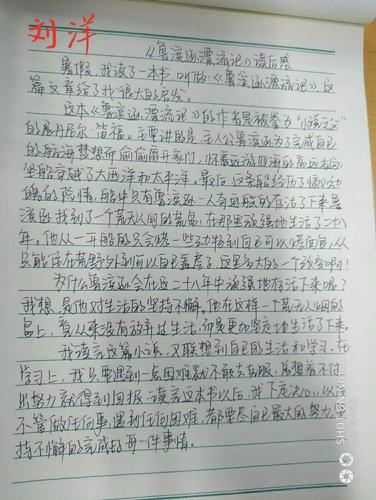 刘洋
《鲁滨逊漂流记》读后感
暑假,我读了一本书,叫做《鲁滨逊漂流记》,这
篇文章给了我很大的启发。
这本《鲁滨逊漂流记》的作者是被称为“小说之父”
的展丹尼尔·笛福。主要讲的是:主人公鲁滨逊为了完成自己
的航海梦想而偷偷离开家门,怀着远游四海的高远志向
坐船穿越了大西洋和太平洋。最后,这条船经历了惊心动
魄的险情,船中只有鲁滨逊一人奇迹般的存活了下来,鲁
滨逊找到了一个荒无人烟的荒岛,在那里顽强地生活了二十八
年。他从一开始的只会烧一些动物到自己可以烤面包,从
只能住在荒野外到可以自己盖房子,这是多大的一个改变啊!
为什么鲁滨逊会在这二十八年中顽强地存活下来呢?
我想,是他对生活的坚持不懈。他在这样一个荒无人烟的
岛上,看从来没有放弃过生活,而是更加坚定地生活了下来。
我读完这篇小说,又联想到自己的生活和学习,在
学习上,我只要遇到一点困难就不敢去克服,总想着不付
出努力就得到回报,读完这本书以后,我下定决心,以后
不管做任何事,遇到任何困难,都要尽自己最大的努力,坚
持不懈的完成好每一件事情。